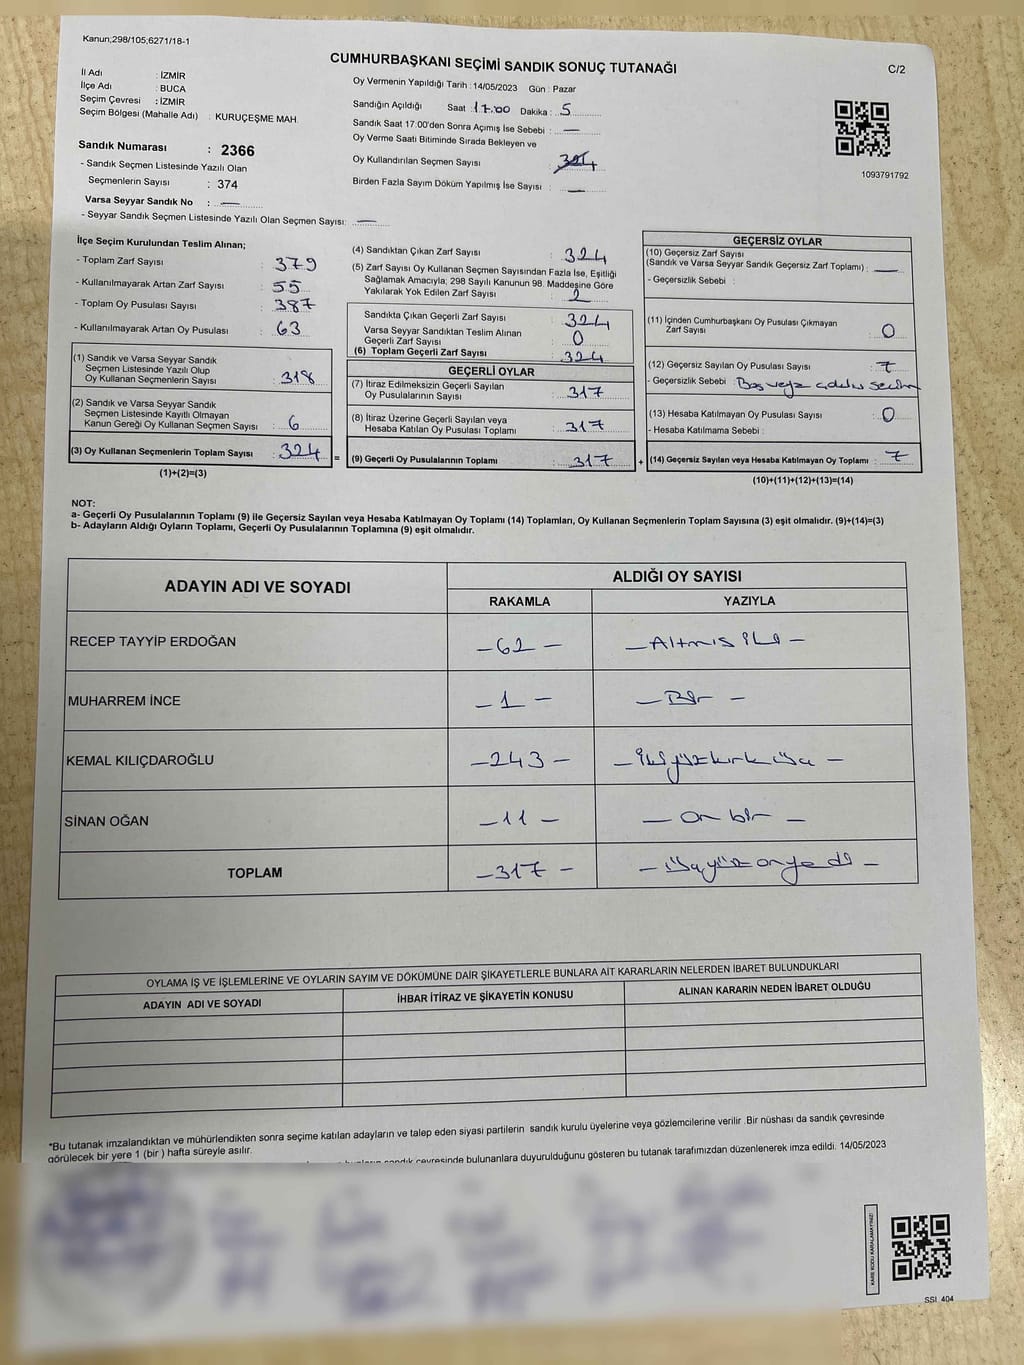 Kanun;298/105;6271/18-1
CUMHURBAŞKANI SEÇİMİ SANDIK SONUÇ TUTANAĞI
C/2
İl Adı : İZMİR
İlçe Adı : BUCA
Seçim Çevresi : İZMİR
Seçim Bölgesi (Mahalle Adı) : KURUÇEŞME MAH.
Sandık Numarası : 2366
- Sandık Seçmen Listesinde Yazılı Olan
Seçmenlerin Sayısı : 374
Varsa Seyyar Sandık No : —
- Seyyar Sandık Seçmen Listesinde Yazılı Olan Seçmen Sayısı: —
Oy Vermenin Yapıldığı Tarih : 14/05/2023 Gün : Pazar
Sandığın Açıldığı Saat : 17.00 Dakika : 5
Sandık Saat 17:00'den Sonra Açımış İse Sebebi : —
Oy Verme Saati Bitiminde Sırada Bekleyen ve
Oy Kullandırılan Seçmen Sayısı : 324
Birden Fazla Sayım Döküm Yapılmış İse Sayısı : —
1093791792
İlçe Seçim Kurulundan Teslim Alınan;
- Toplam Zarf Sayısı : 379
- Kullanılmayarak Artan Zarf Sayısı : 55
- Toplam Oy Pusulası Sayısı : 387
- Kullanılmayarak Artan Oy Pusulası : 63
(1) Sandık ve Varsa Seyyar Sandık
Seçmen Listesinde Yazılı Olup
Oy Kullanan Seçmenlerin Sayısı : 318
(2) Sandık ve Varsa Seyyar Sandık
Seçmen Listesinde Kayıtlı Olmayan
Kanun Gereği Oy Kullanan Seçmen Sayısı : 6
(3) Oy Kullanan Seçmenlerin Toplam Sayısı : 324 =
(1)+(2)=(3)
(4) Sandıktan Çıkan Zarf Sayısı : 324
(5) Zarf Sayısı Oy Kullanan Seçmen Sayısından Fazla İse, Eşitliği
Sağlamak Amacıyla; 298 Sayılı Kanunun 98. Maddesine Göre
Yakılarak Yok Edilen Zarf Sayısı :
Sandıkta Çıkan Geçerli Zarf Sayısı : 324
Varsa Seyyar Sandıktan Teslim Alınan
Geçerli Zarf Sayısı : 0
(6) Toplam Geçerli Zarf Sayısı : 324
GEÇERLİ OYLAR
(7) İtiraz Edilmeksizin Geçerli Sayılan
Oy Pusulasının Sayısı : 317
(8) İtiraz Üzerine Geçerli Sayılan veya
Hesaba Katılan Oy Pusulası Toplamı : 317
(9) Geçerli Oy Pusulalarının Toplamı : 317 +
GEÇERSİZ OYLAR
(10) Geçersiz Zarf Sayısı
(Sandık ve Varsa Seyyar Sandık Geçersiz Zarf Toplamı) : —
- Geçersizlik Sebebi :
(11) İçinden Cumhurbaşkanı Oy Pusulası Çıkmayan
Zarf Sayısı : 0
(12) Geçersiz Sayılan Oy Pusulası Sayısı : 7
- Geçersizlik Sebebi : Boş veya
(13) Hesaba Katılmayan Oy Pusulası Sayısı : 0
- Hesaba Katılmama Sebebi :
(14) Geçersiz Sayılan veya Hesaba Katılmayan Oy Toplamı : 7
(10)+(11)+(12)+(13)=(14)
NOT:
a- Geçerli Oy Pusulalarının Toplamı (9) ile Geçersiz Sayılan veya Hesaba Katılmayan Oy Toplamı (14) Toplamları, Oy Kullanan Seçmenlerin Toplam Sayısına (3) eşit olmalıdır. (9)+(14)=(3)
b- Adayların Aldığı Oyların Toplamı, Geçerli Oy Pusulalarının Toplamına (9) eşit olmalıdır.
ADAYIN ADI VE SOYADI ALDIĞI OY SAYISI
RAKAMLA YAZIYLA
RECEP TAYYİP ERDOĞAN –62– –Altmış iki–
MUHARREM İNCE –1– –Bir–
KEMAL KILIÇDAROĞLU –243– –İkiyüzkırküç–
SİNAN OĞAN –11– –on bir–
TOPLAM –317– –Üçyüzonyedi–
OYLAMA İŞ VE İŞLEMLERİNE VE OYLARIN SAYIM VE DÖKÜMÜNE DAİR ŞİKAYETLERLE BUNLARA AİT KARARLARIN NELERDEN İBARET BULUNDUKLARI
ADAYIN ADI VE SOYADI İHBAR İTİRAZ VE ŞİKAYETİN KONUSU ALINAN KARARIN NEDEN İBARET OLDUĞU
*Bu tutanak imzalandıktan ve mühürlendikten sonra seçime katılan adayların ve talep eden siyasi partilerin sandık kurulu üyelerine veya gözlemcilerine verilir .Bir nüshası da sandık çevresinde
görülecek bir yere 1 (bir ) hafta süreyle asılır.
sandık çevresinde bulunanlara duyurulduğunu gösteren bu tutanak tarafımızdan düzenlenerek imza edildi. 14/05/2023
KARE KODU KARALAMAYINIZ!
SSI_404